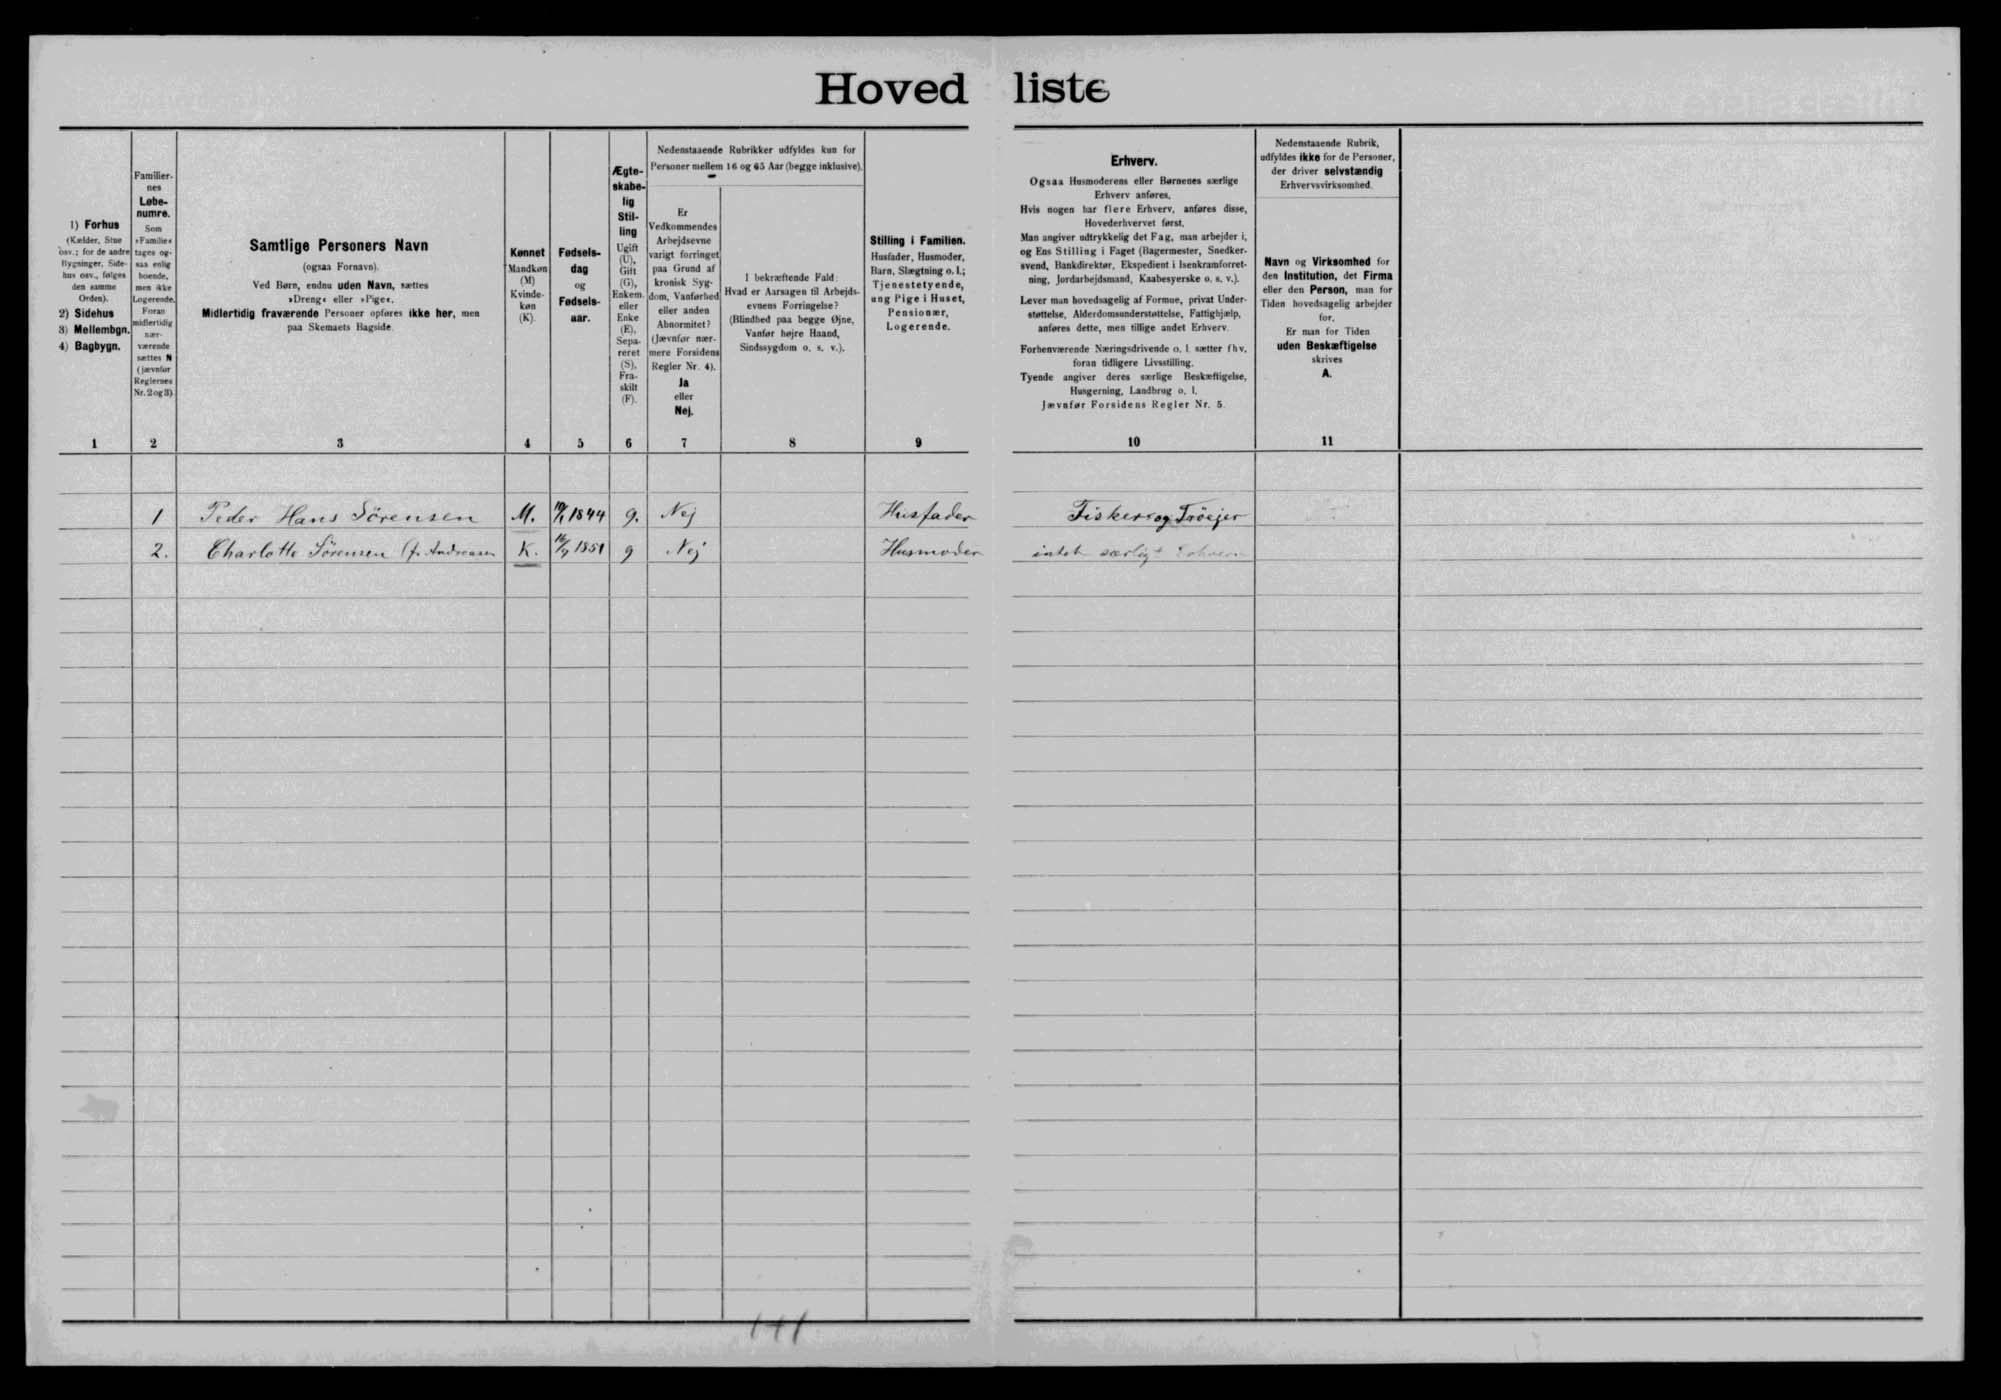 Hovedliste
1) Forhus
(Kælder, Stue
osv.; for de andre
Bygninger, Side-
hus osv., følges
den samme
Orden).
2) Sidehus
3) Mellembgn.
4) Bagbygn.
Familier-
nes
Løbe-
numre.
Som
»Familie«
tages og-
saa enlig
boende,
men ikke
Logerende.
Foran
midlertidig
nær-
værende
sættes N
(jævnfør
Reglernes
Nr. 2 og 3)
Samtlige Personers Navn
(ogsaa Fornavn).
Ved Børn, endnu uden Navn, sættes
»Dreng« eller »Pige«.
Midlertidig fraværende Personer opføres ikke her, men
paa Skemaets Bagside.
Kønnet
Mandkøn
(M)
Kvinde-
køn
(K).
Fødsels-
dag
og
Fødsels-
aar.
Ægte-
skabe-
lig
Stil-
ling
Ugift
(U),
Gift
(G),
Enkem.
eller
Enke
(E),
Sepa-
reret
(S),
Fra-
skilt
(F).
Nedenstaaende Rubrikker udfyldes kun for
Personer mellem 16 og 65 Aar (begge inklusive).
Er
Vedkommendes
Arbejdsevne
varigt forringet
paa Grund af
kronisk Syg-
dom, Vanførhed
eller anden
Abnormitet?
(Jævnfør nær-
mere Forsidens
Regler Nr. 4).
Ja
eller
Nej.
I bekræftende Fald:
Hvad er Aarsagen til Arbejds-
evnens Forringelse?
(Blindhed paa begge Øjne,
Vanfør højre Haand,
Sindssygdom o. s. v.).
Stilling i Familien.
Husfader, Husmoder,
Barn, Slægtning o. l.;
Tjenestetyende,
ung Pige i Huset,
Pensionær,
Logerende.
Erhverv.
Ogsaa Husmoderens eller Børnenes særlige
Erhverv anføres.
Hvis nogen har flere Erhverv, anføres disse,
Hovederhvervet først.
Man angiver udtrykkelig det Fag, man arbejder i,
og Ens Stilling i Faget (Bagermester, Snedker-
svend, Bankdirektør, Ekspedient i Isenkramforret-
ning, Jordarbejdsmand, Kaabesyerske o. s. v.).
Lever man hovedsagelig af Formue, privat Under-
støttelse, Alderdomsunderstøttelse, Fattighjælp,
anføres dette, men tillige andet Erhverv.
Forhenværende Næringsdrivende o. l. sætter fhv.
foran tidligere Livsstilling.
Tyende angiver deres særlige Beskæftigelse,
Husgerning, Landbrug o. l.
Jævnfør Forsidens Regler Nr. 5.
Nedenstaaende Rubrik,
udfyldes ikke for de Personer,
der driver selvstændig
Erhvervsvirksomhed.
Navn og Virksomhed for
den Institution, det Firma
eller den Person, man for
Tiden hovedsagelig arbejder
for.
Er man for Tiden
uden Beskæftigelse
skrives
A.
1 2 3 4 5 6 7 8 9 10 11
1 Peder Hans Sörensen M. 1844 g. Nej Husfader Fisker og
2. Charlotte Sörensen (f. Andreasen K. 1851 g Nej Husmoder intet særligt Erhverv
141